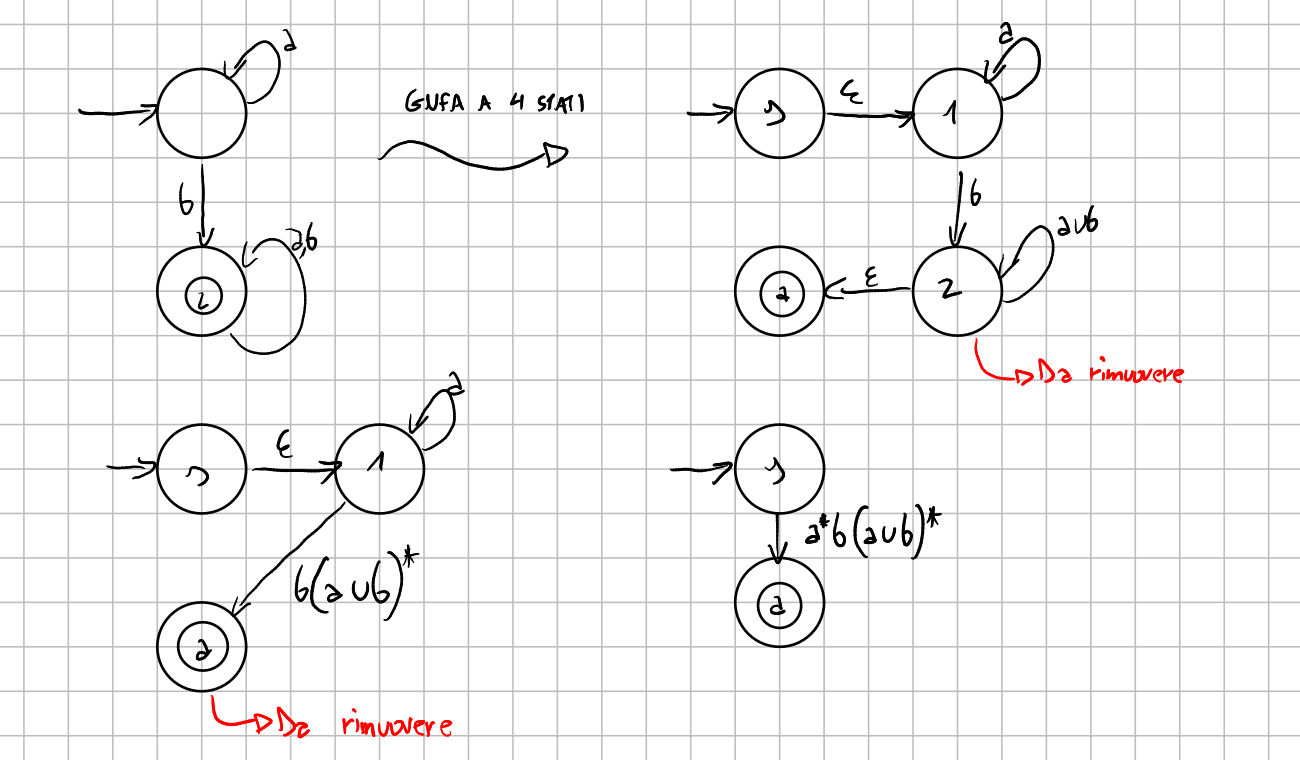 a
b
a,b
2
GNFA A 4 STATI
s
ε
1
a
b
a∪b
2
ε
a
Da rimuovere
s
ε
1
a
b(a∪b)*
a
Da rimuovere
s
a*b(a∪b)*
a